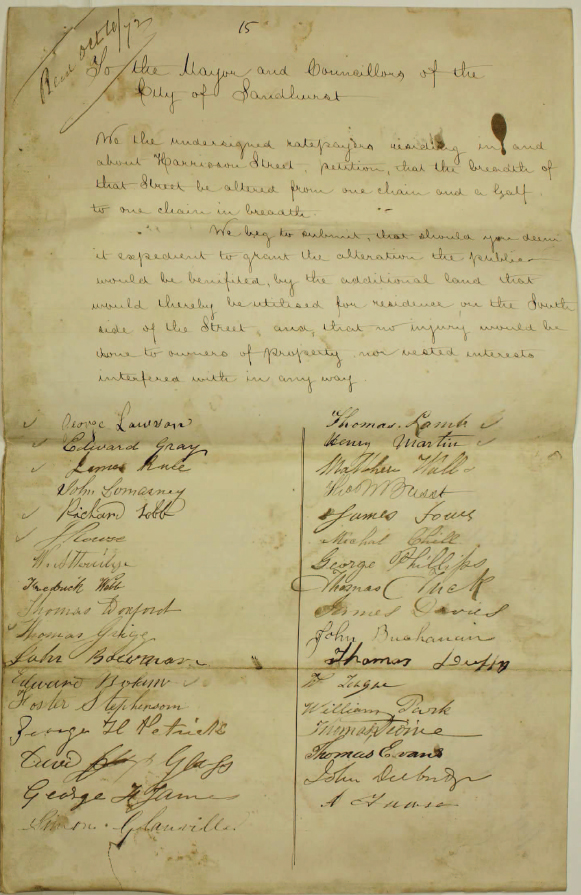 15
Oct 10/72
To the Mayor and Councillors of the
City of Sandhurst
We the undersigned ratepayers residing in and
about Harrison Street, petition, that the breadth of
that Street be altered from one chain and a half
to one chain in breadth.
We beg to submit, that should you deem
it expedient to grant the alteration the public
would be benifited, by the additional land that
would thereby be utilised for residence, on the South
side of the Street, and, that no injury would be
done to owners of property, nor vested interests
interfered with in any way.
George Lawson
Edward Gray
James
John Lomasney
Richard Tobb
Frederick Webb
Thomas
Thomas
John Bowman
Edward
Foster Stephenson
George H Patrick
David Glass
George H James
Simon Glanville
Thomas Lamb
Henry Martin
Matthew
James
George Phillips
Thomas Tuck
James Davies
John Buchanan
Thomas Duffy
William Park
Thomas
Thomas Evans
John
A